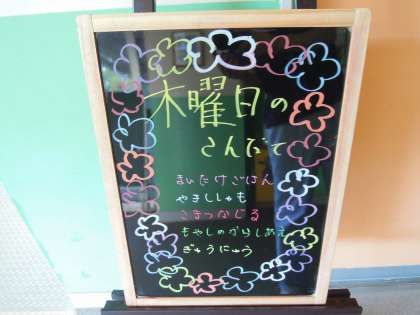 木曜日の
こんだて
まいたけごはん
やきししゃも
こまつなじる
もやしのからしあえ
ぎゅうにゅう